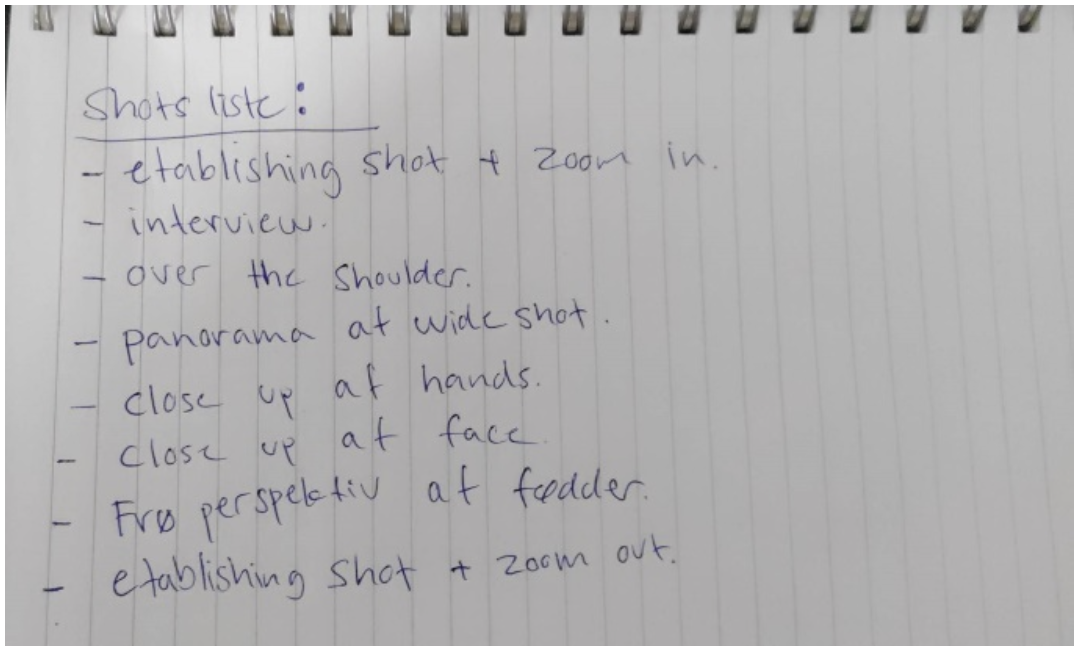 Shots liste:
- etablishing shot + zoom in.
- interview.
- over the shoulder.
- panorama af wide shot.
- close up af hands.
- close up af face.
- Frø perspektiv af fødder.
- etablishing shot + zoom out.